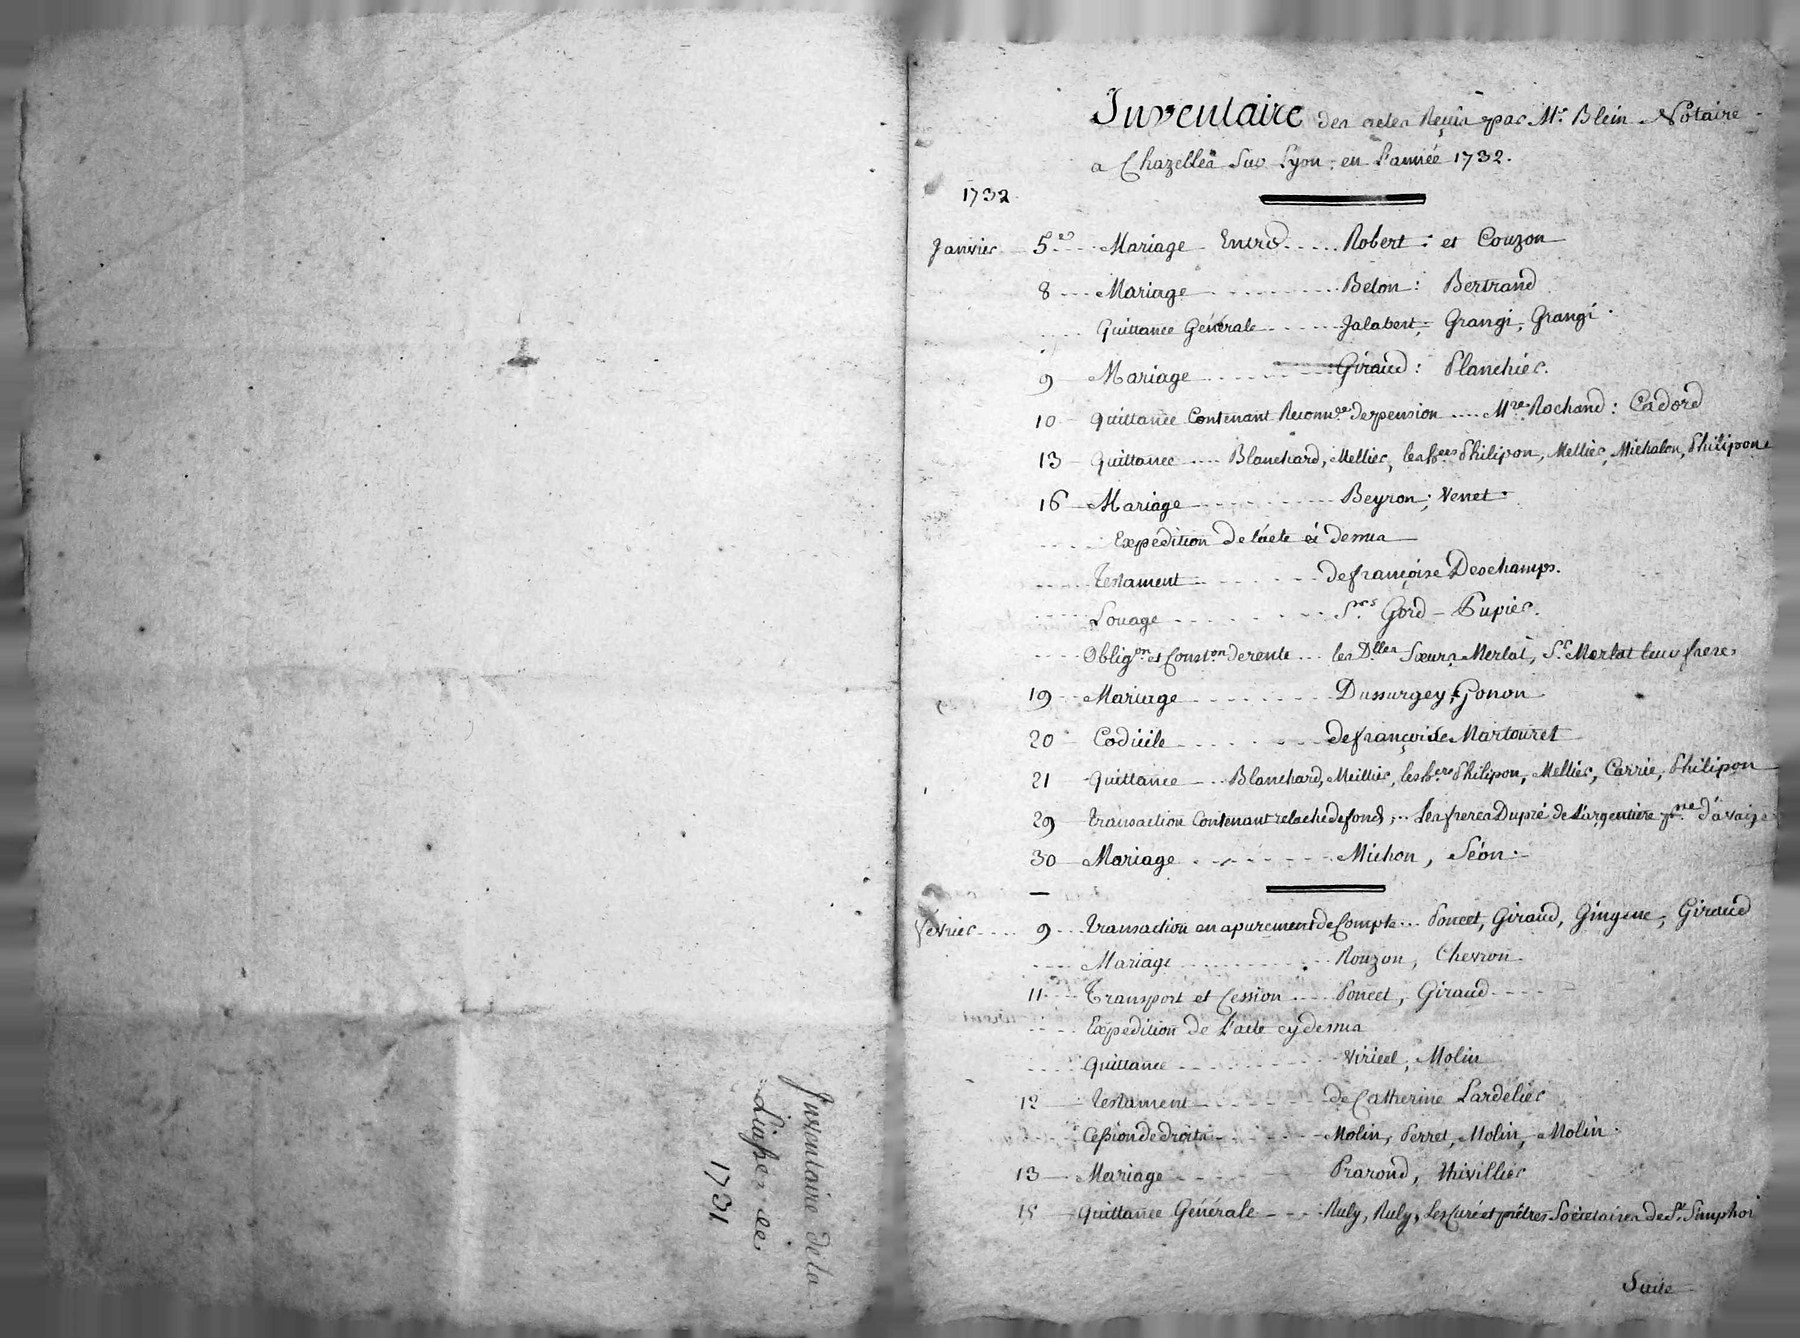 Inventaire de la
Liasse de
1731
Inventaire des actes Reçus par Me. Blein Notaire
a Chazelles Sur Lyon en L'année 1732.
1732
Janvier 5e Mariage Entre ..... Robert : et Couzon
8 ... Mariage ......... Belon : Bertrand
.... Quittance Générale ...... Jalabert = Grangi, Grangi.
9 Mariage ........ Giraud : Planchier.
10 quittance Contenant Reconnce de pension .... Mre Rochand : Cadord
13 quittance .... Blanchard, Mellier, les hers Philipon, Mellier, Michalon, Philipon
16 Mariage ......... Beyron ; Venet.
.... Expédition de l'acte ci dessus
..... Testament ....... de françoise Deschamps.
..... Louage ........ Srs Gord - Pupier.
.... Obligon et Conston de rente ... les Dlles Sœurs Merlat, Sr Merlat leur frere
19 Mariage ........ Dussurgey, Gonon
20 Codicile ....... de françoise Martouret
21 quittance ... Blanchard, Meillier, les hers Philipon, Mellier, Carrie, Philipon
29 transaction Contenant relache de fond ; .. Les freres Dupré de Largentiere d'avaize
30 Mariage ........ Michon, Séon.
février .... 9 ... transaction en apurement de Compte ... Poncet, Giraud, Gingene, Giraud
.... Mariage ......... Rouzon, Chevron.
11 ... Transport et Cession .... Poncet, Giraud ....
.... Expedition de L'acte cy dessus
.... quittance ........ Viricel, Molin
12 testament ....... de Catherine Lardelier
.... Cession de droits ....... Molin, Perret, Molin, Molin.
13 Mariage ...... Prarond, Thivillier
15 quittance Générale .... Ruly, Ruly, Les Curé et prêtres Societaires de St Simphoi
Suite